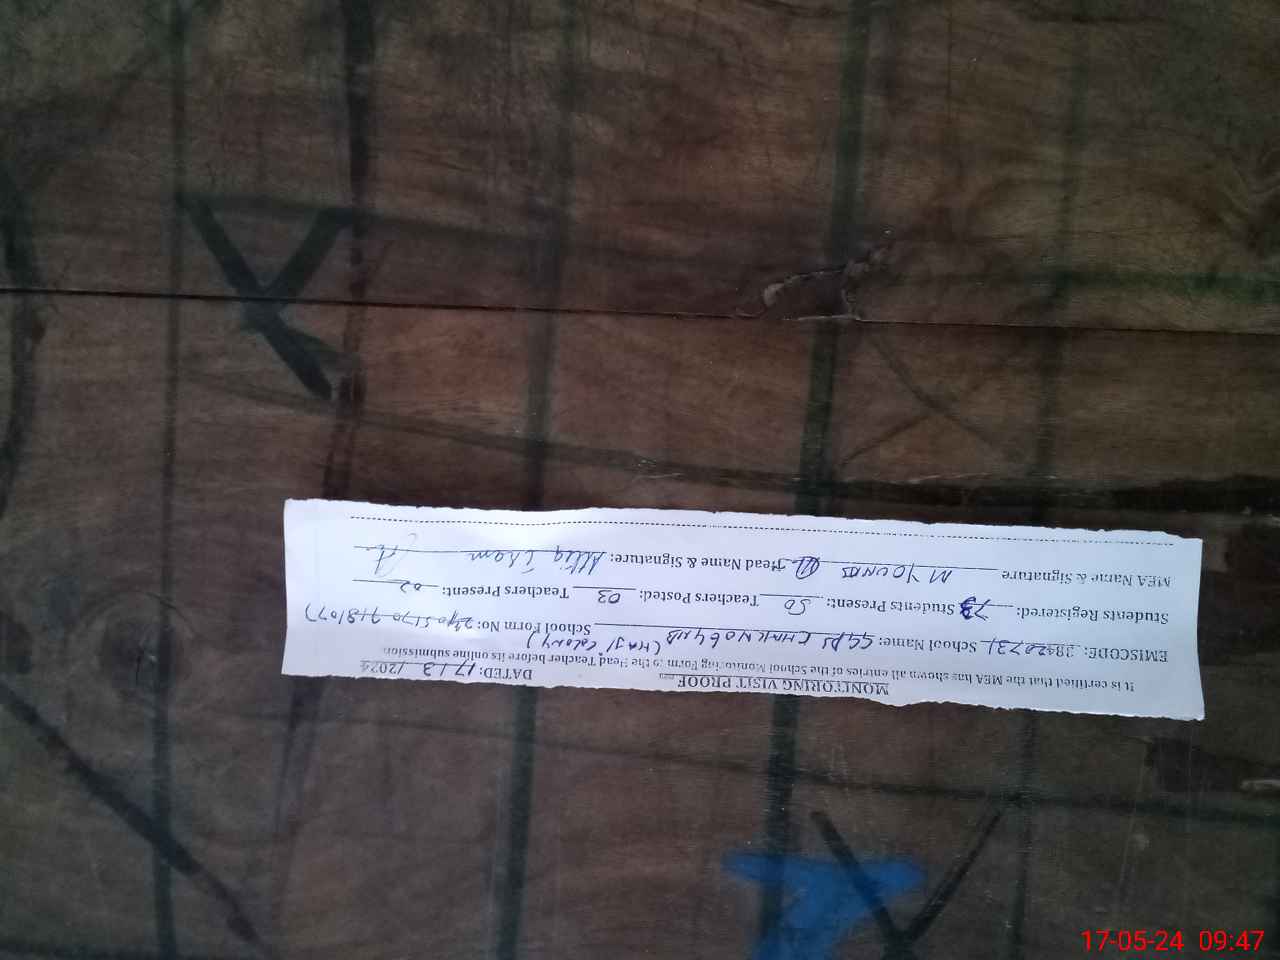 MONITORING VISIT PROOF
DATED: 17/3/2024
It is certified that the MEA has shown all entries of the School Monitoring Form to the Head Teacher before its online submission.
EMISCODE: 38420731 School Name: GGPS CHAK NO 64 NB (HAJI COLONY) School Form No:
Students Registered: 73 Students Present: 50 Teachers Posted: 03 Teachers Present: 02
MEA Name & Signature M YOUNAS Head Name & Signature: Attiq
17-05-24 09:47